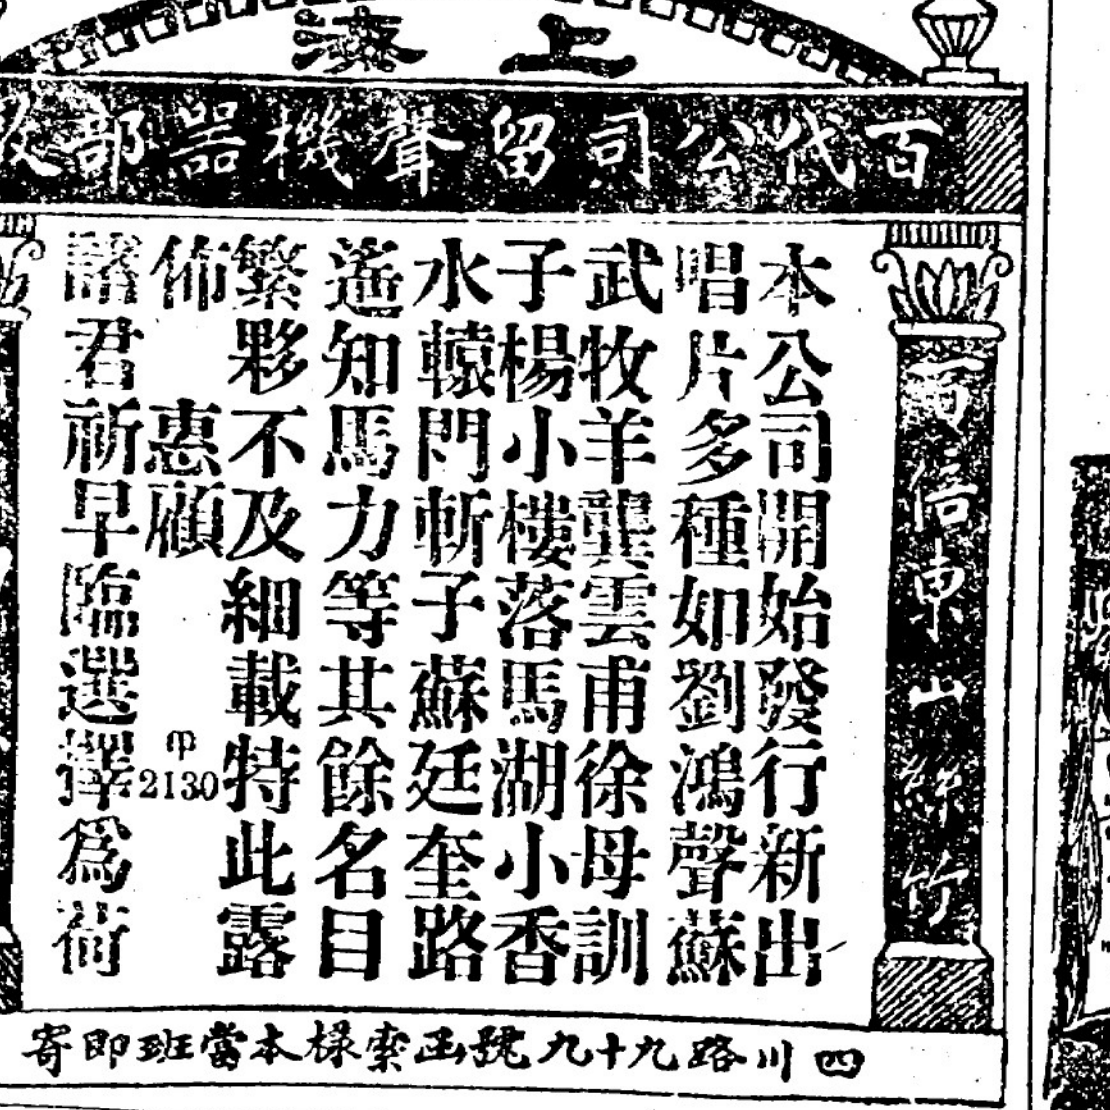 上海
百代公司留聲機器部啟
本公司開始發行新出
唱片多種如劉鴻聲蘇
武牧羊龔雲甫徐母訓
子楊小樓落馬湖小香
水轅門斬子蘇廷奎路
遙知馬力等其餘名目
繁夥不及細載特此露
佈 惠顧
諸君祈早臨選擇為荷
甲
2130
四川路九十九號函索樣本當班即寄